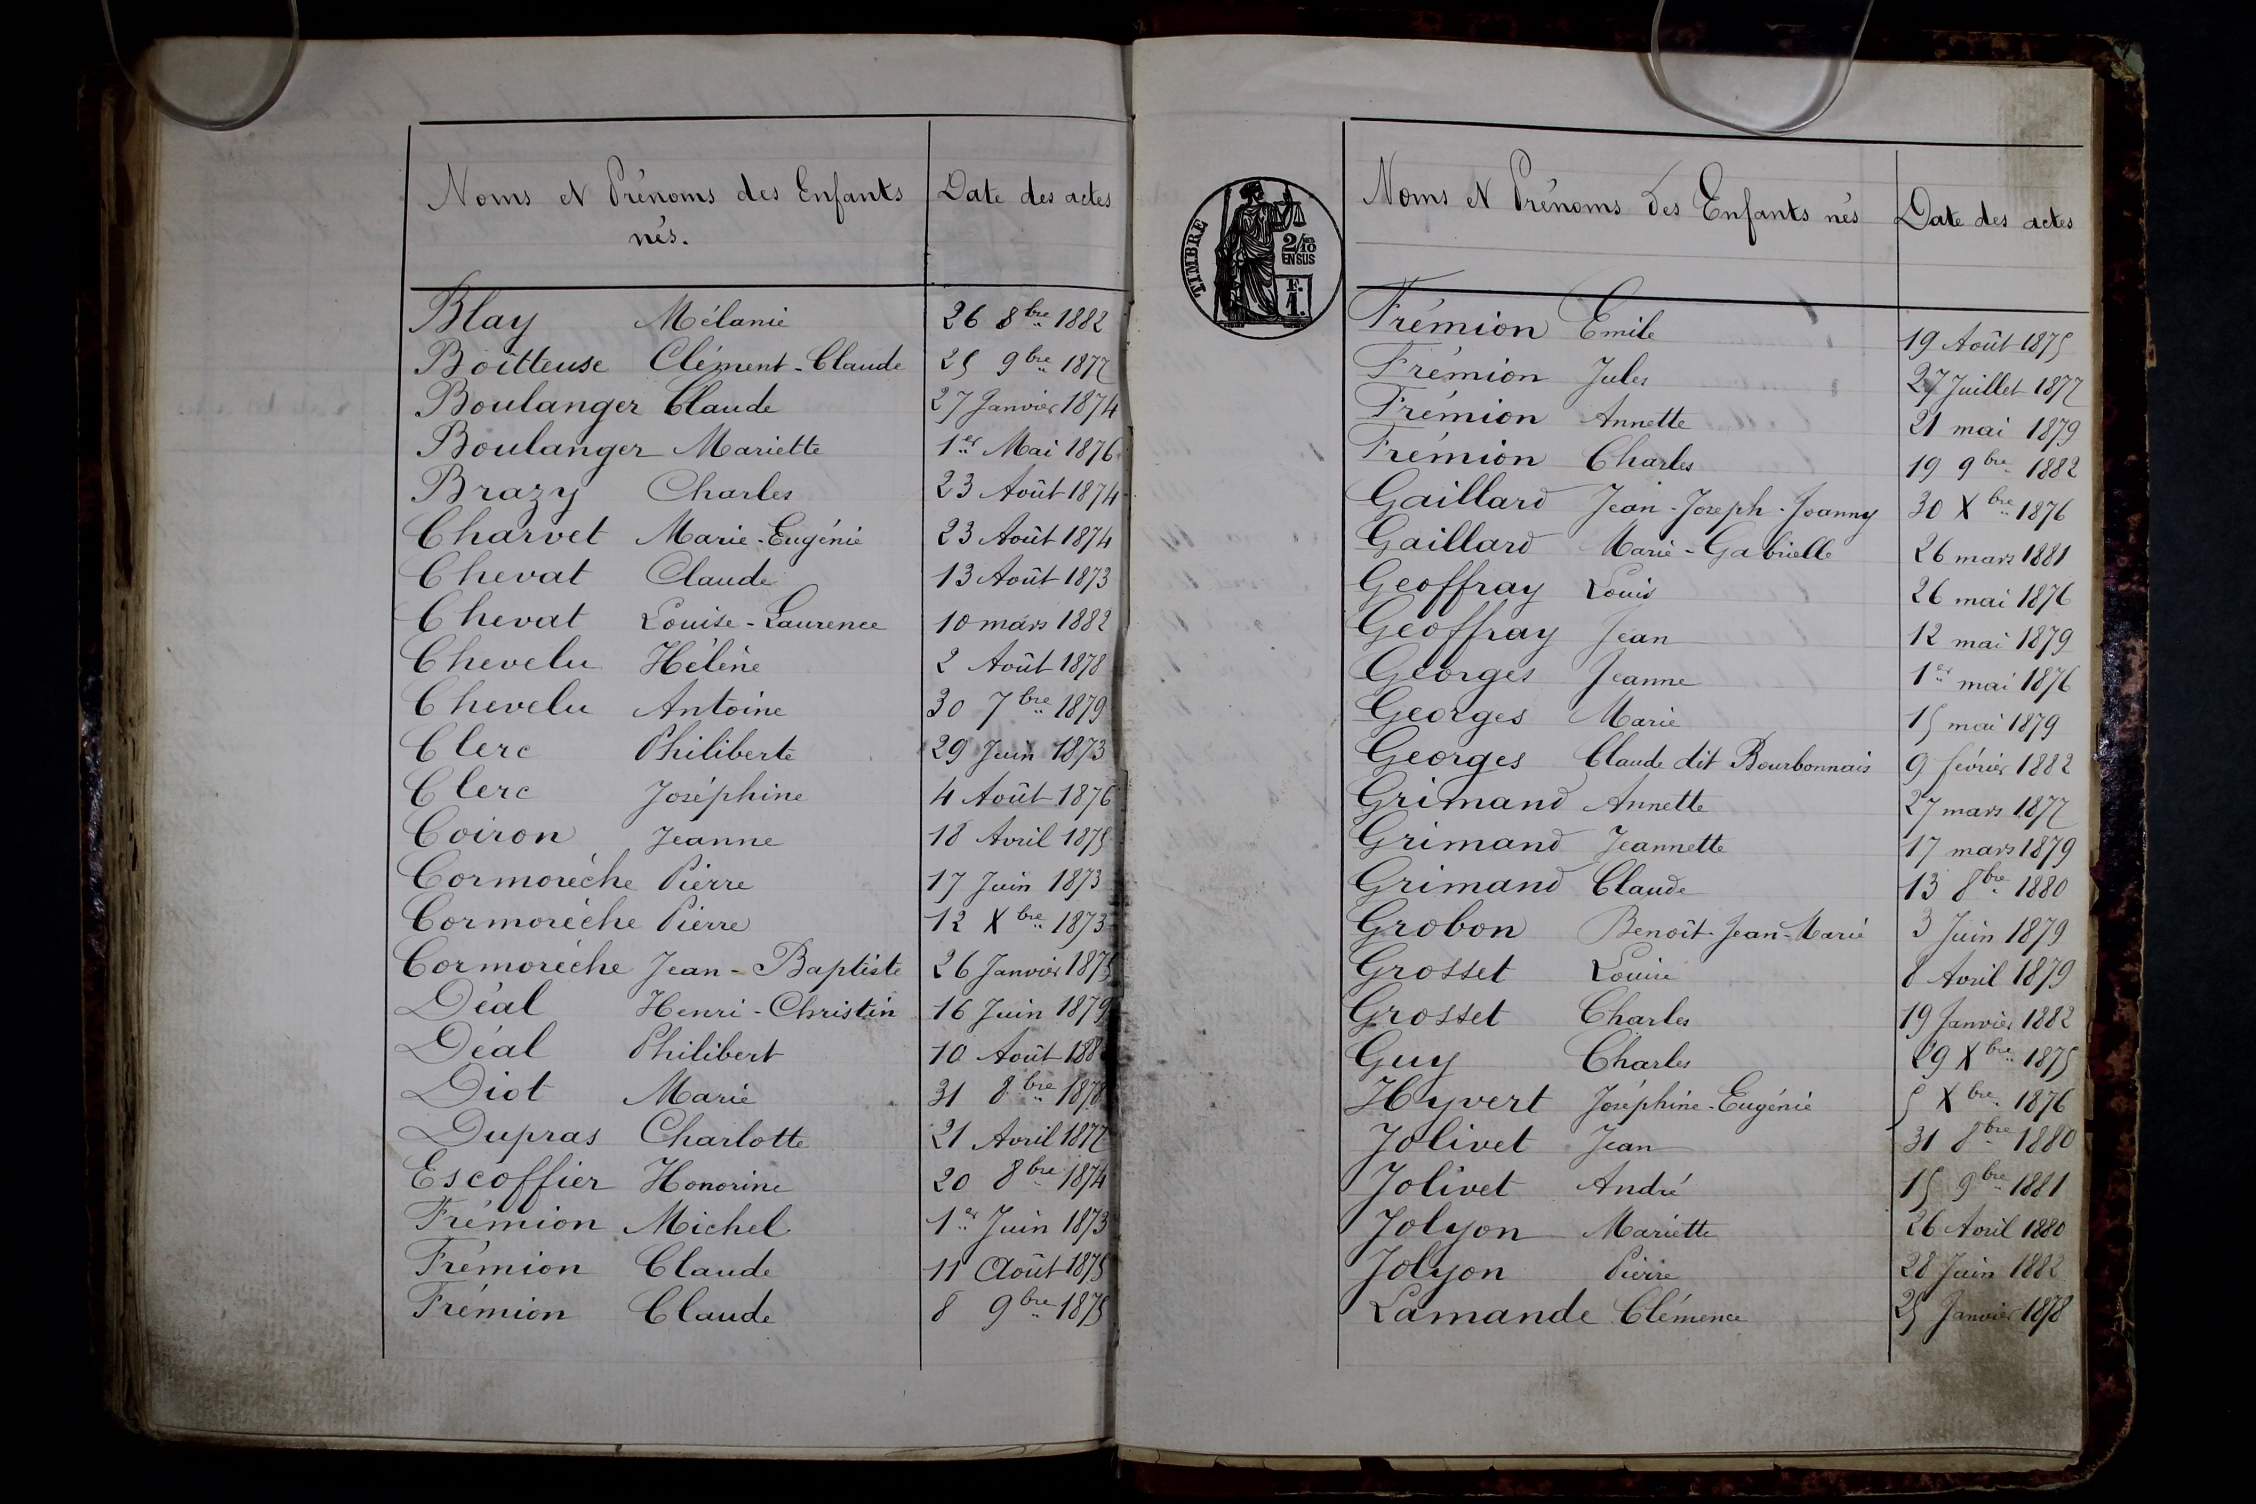 Noms et Prénoms des Enfants
nés.
Date des actes
Blay Mélanie 26 8bre 1882
Boitteuse Clément-Claude 25 9bre 1877
Boulanger Claude 27 Janvier 1874
Boulanger Mariette 1er Mai 1876
Brazy Charles 23 Août 1874
Charvet Marie-Eugénie 23 Août 1874
Chevat Claude 13 Août 1873
Chevat Louise-Laurence 10 mars 1882
Chevelu Hélène 2 Août 1878
Chevelu Antoine 30 7bre 1879
Clerc Philiberte 29 Juin 1873
Clerc Joséphine 4 Août 1876
Coiron Jeanne 18 Avril 1875
Cormorèche Pierre 17 Juin 1873
Cormorèche Pierre 12 Xbre 1873
Cormorèche Jean-Baptiste 26 Janvier 1875
Déal Henri-Christin 16 Juin 1879
Déal Philibert 10 Août
Diot Marie 31 8bre 1878
Dupras Charlotte 21 Avril 1877
Escoffier Honorine 20 8bre 1874
Frémion Michel 1er Juin 1873
Frémion Claude 11 Août 1875
Frémion Claude 8 9bre 1875
TIMBRE
2/10
EN SUS
F.
1.
Noms et Prénoms des Enfants nés
Date des actes
Frémion Emile 19 Août 1875
Frémion Jules 27 Juillet 1877
Frémion Annette 21 mai 1879
Frémion Charles 19 9bre 1882
Gaillard Jean-Joseph-Joanny 30 Xbre 1876
Gaillard Marie-Gabrielle 26 mars 1881
Geoffray Louis 26 mai 1876
Geoffray Jean 12 mai 1879
Georges Jeanne 1er mai 1876
Georges Marie 15 mai 1879
Georges Claude dit Bourbonnais 9 février 1882
Grimand Annette 27 mars 1877
Grimand Jeannette 17 mars 1879
Grimand Claude 13 8bre 1880
Grobon Benoît-Jean-Marie 3 Juin 1879
Grosset Louise 8 Avril 1879
Grosset Charles 19 Janvier 1882
Guy Charles 29 Xbre 1875
Hyvert Joséphine-Eugénie 5 Xbre 1876
Jolivet Jean 31 8bre 1880
Jolivet André 15 9bre 1881
Jolyon Mariette 26 Avril 1880
Jolyon Pierre 28 Juin 1882
Lamande Clémence 25 Janvier 1878